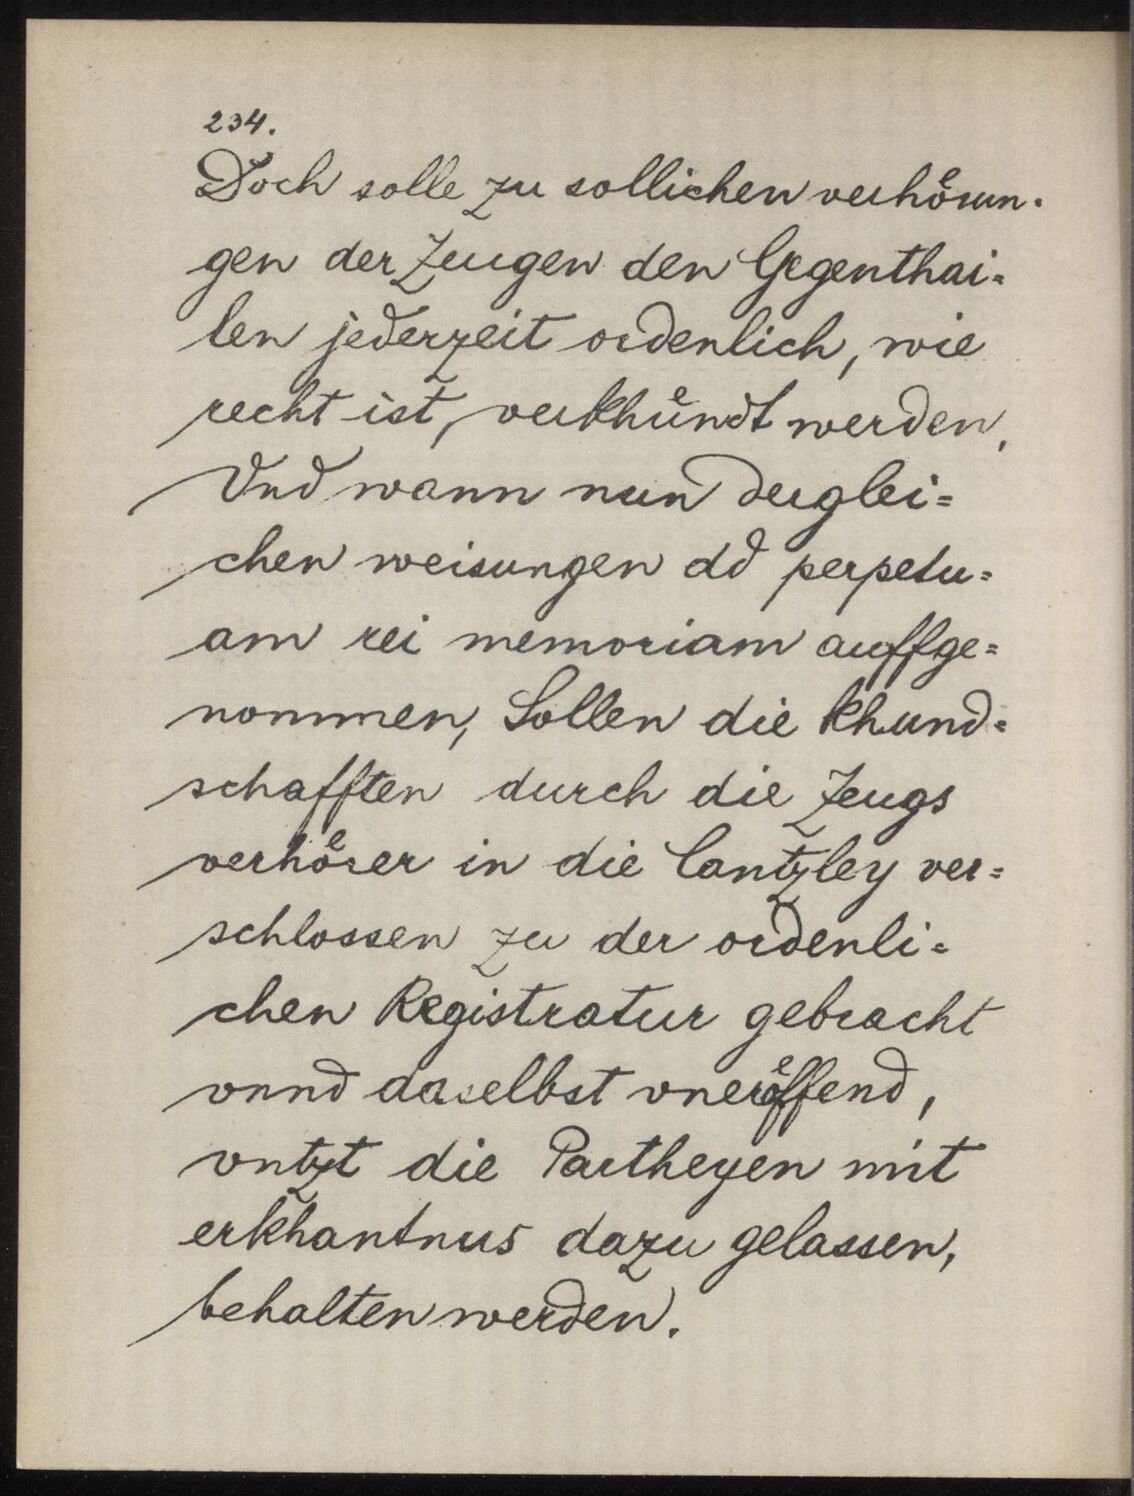 234.
Doch solle zu sollichen verhöͤrun-
gen der Zeugen den Gegenthai=
len jederzeit ordenlich, wie
recht ist, verkhuͤndt werden,
Vnd wann nun derglei=
chen weisungen ad perpetu=
am rei memoriam auffge=
nommen, Sollen die khund=
schafften durch die Zeugs
verhoͤrer in die Cantzley ver=
schlossen zu der ordenli=
chen Registratur gebracht
vnnd daselbst vneroͤffend,
vntzt die Partheyen mit
erkhantnus dazu gelassen,
behalten werden.